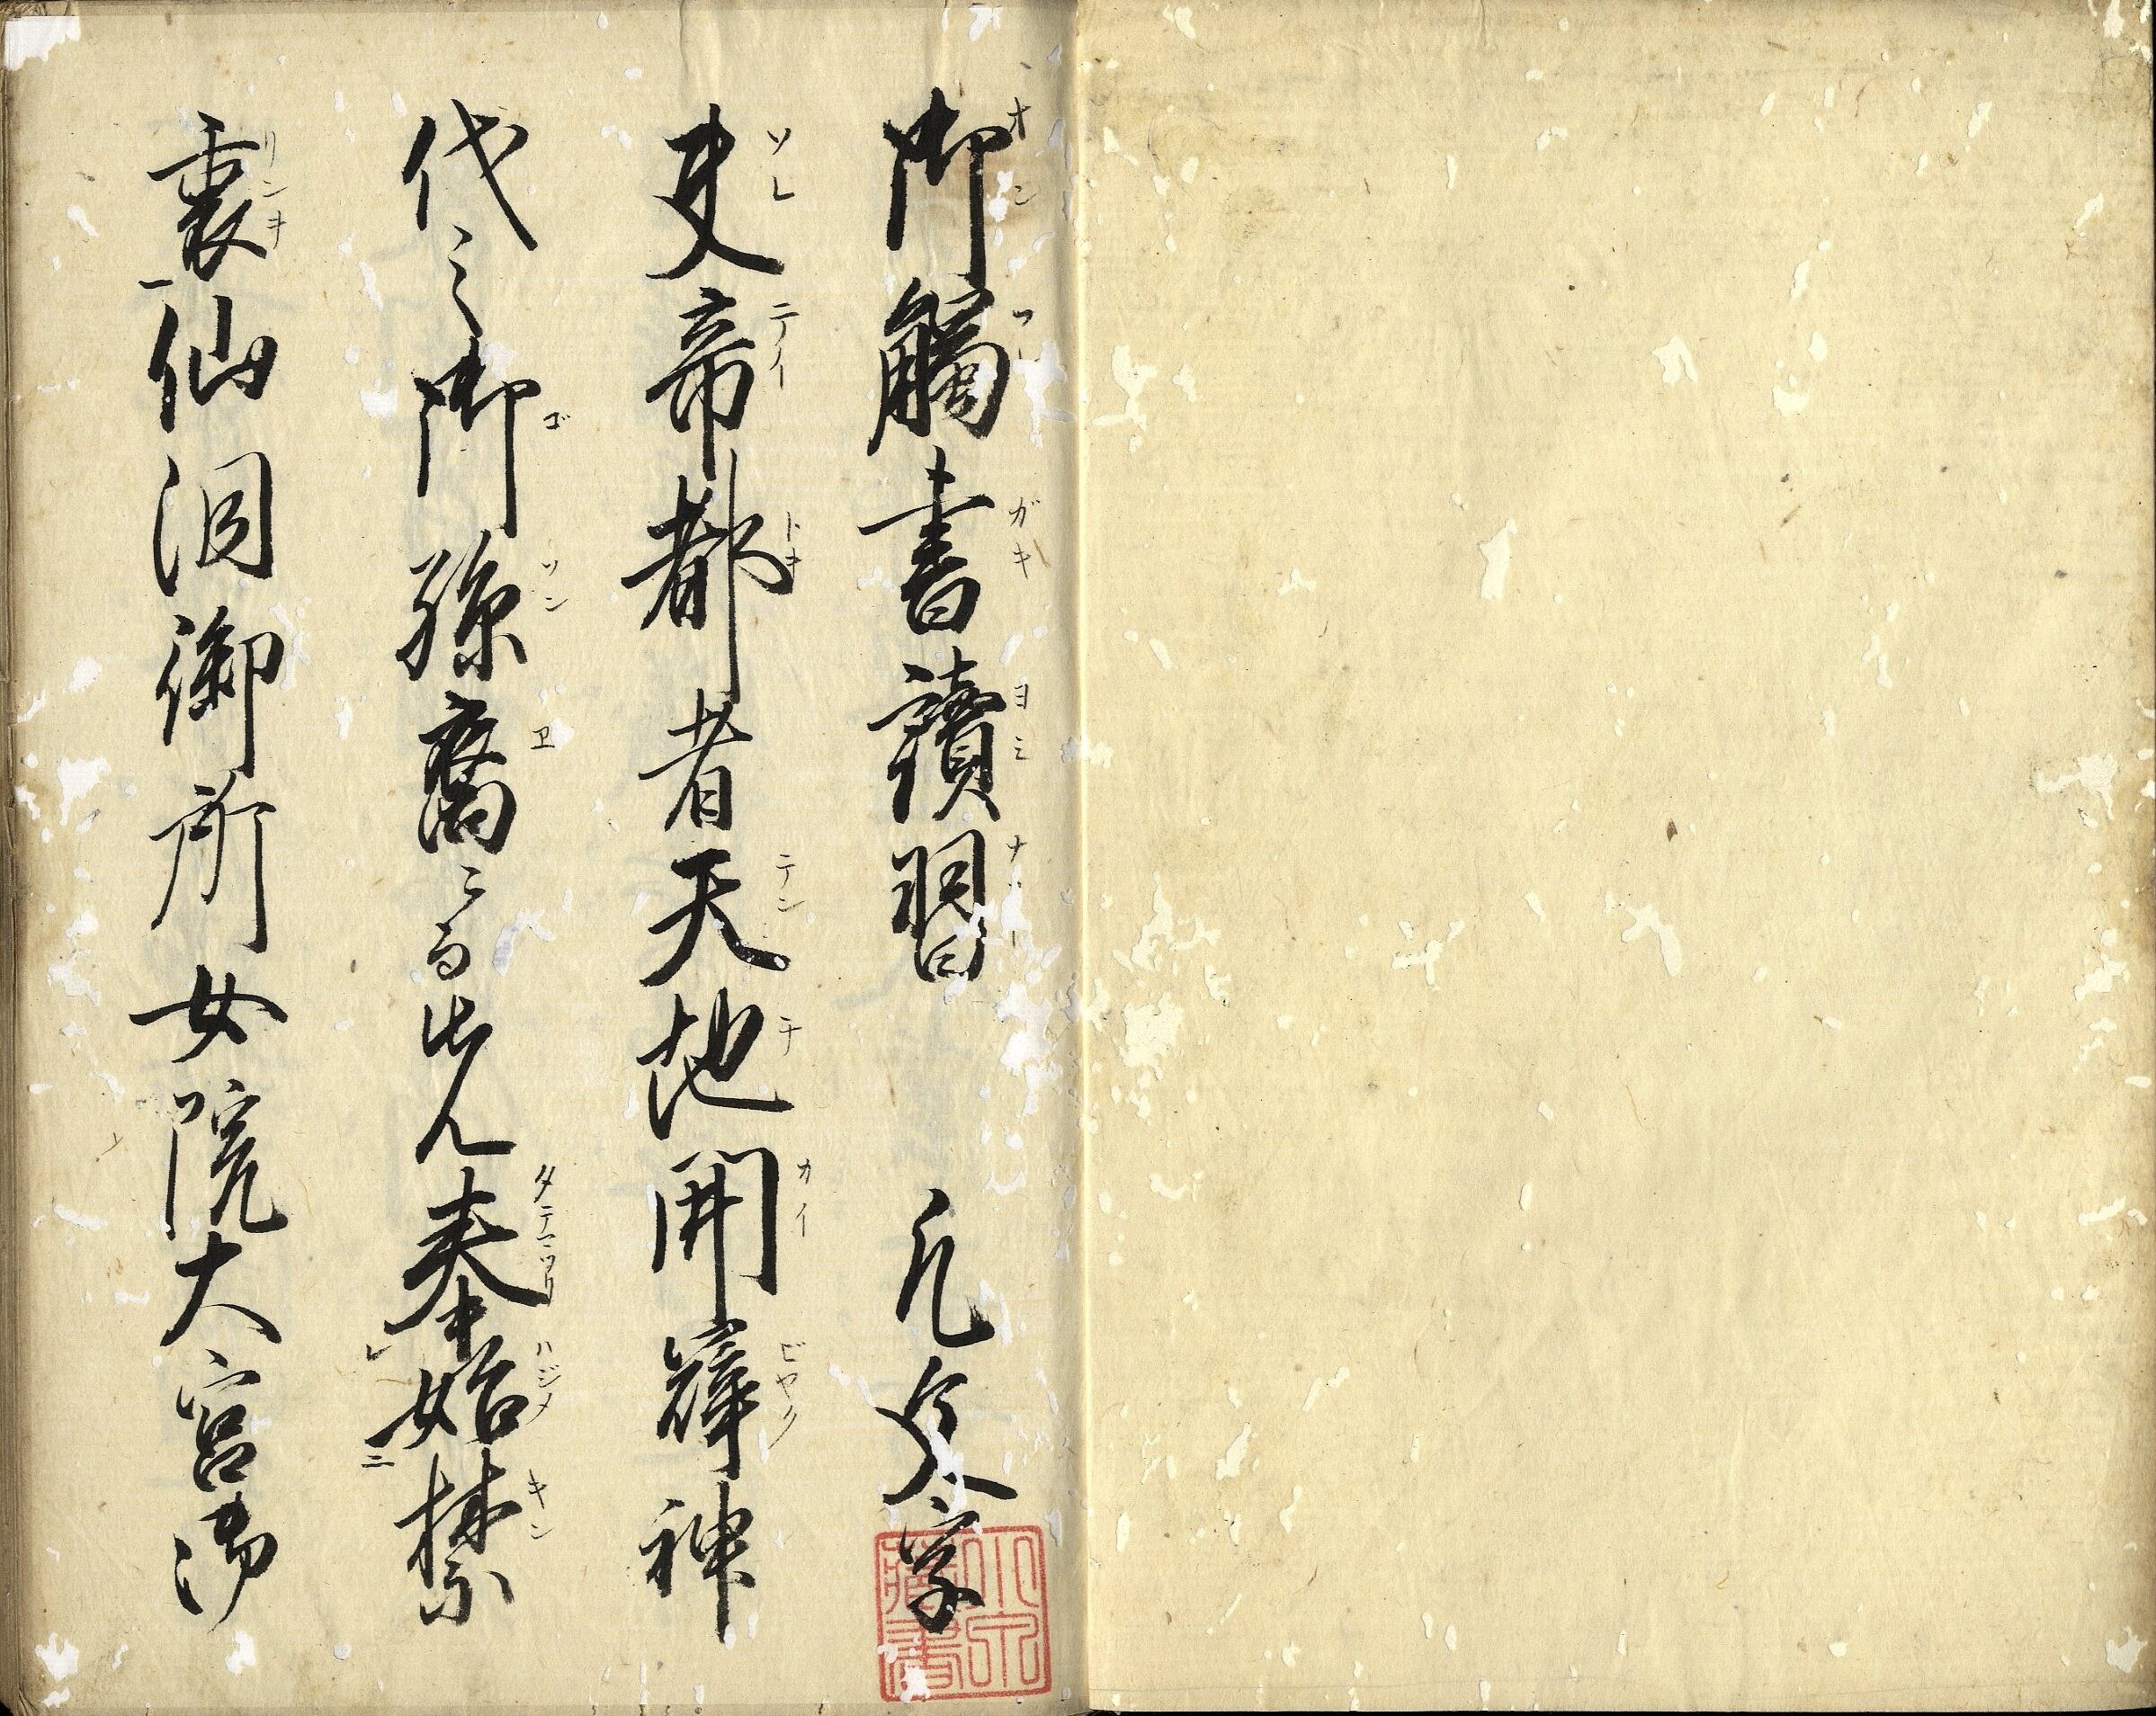 御觸書讀習 凡文字
夫帝都者天地開闢神
代之御孫裔ニ而奉始禁
裏仙洞御所女院大宮御